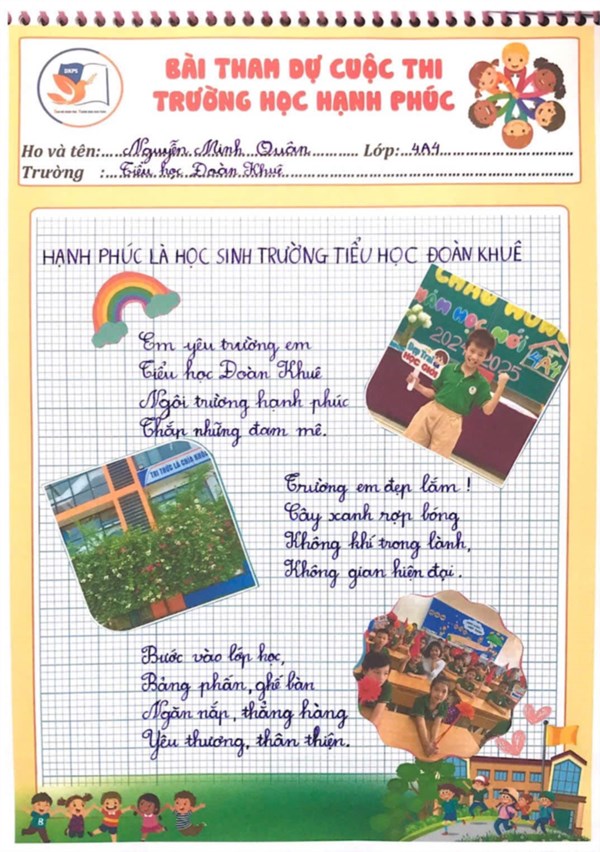 DKPS
BÀI THAM DỰ CUỘC THI
TRƯỜNG HỌC HẠNH PHÚC
Họ và tên: Nguyễn Minh Quân Lớp: 4A4
Trường : Tiểu học Đoàn Khuê
HẠNH PHÚC LÀ HỌC SINH TRƯỜNG TIỂU HỌC ĐOÀN KHUÊ
Em yêu trường em
Tiểu học Đoàn Khuê
Ngôi trương hạnh phúc
Thắp những đam mê.
CHÀO MỪNG
NĂM HỌC MỚI
2024 2025
4A4
Đẹp Trai
HỌC GIỎI
TRI THỨC LÀ CHÌA KHÓA
Trường em đẹp lắm !
Cây xanh rợp bóng
Không khí trong lành,
Không gian hiện đại.
Bước vào lớp học,
Bảng phấn, ghế bàn
Ngăn nắp, thẳng hàng
Yêu thương, thân thiện.